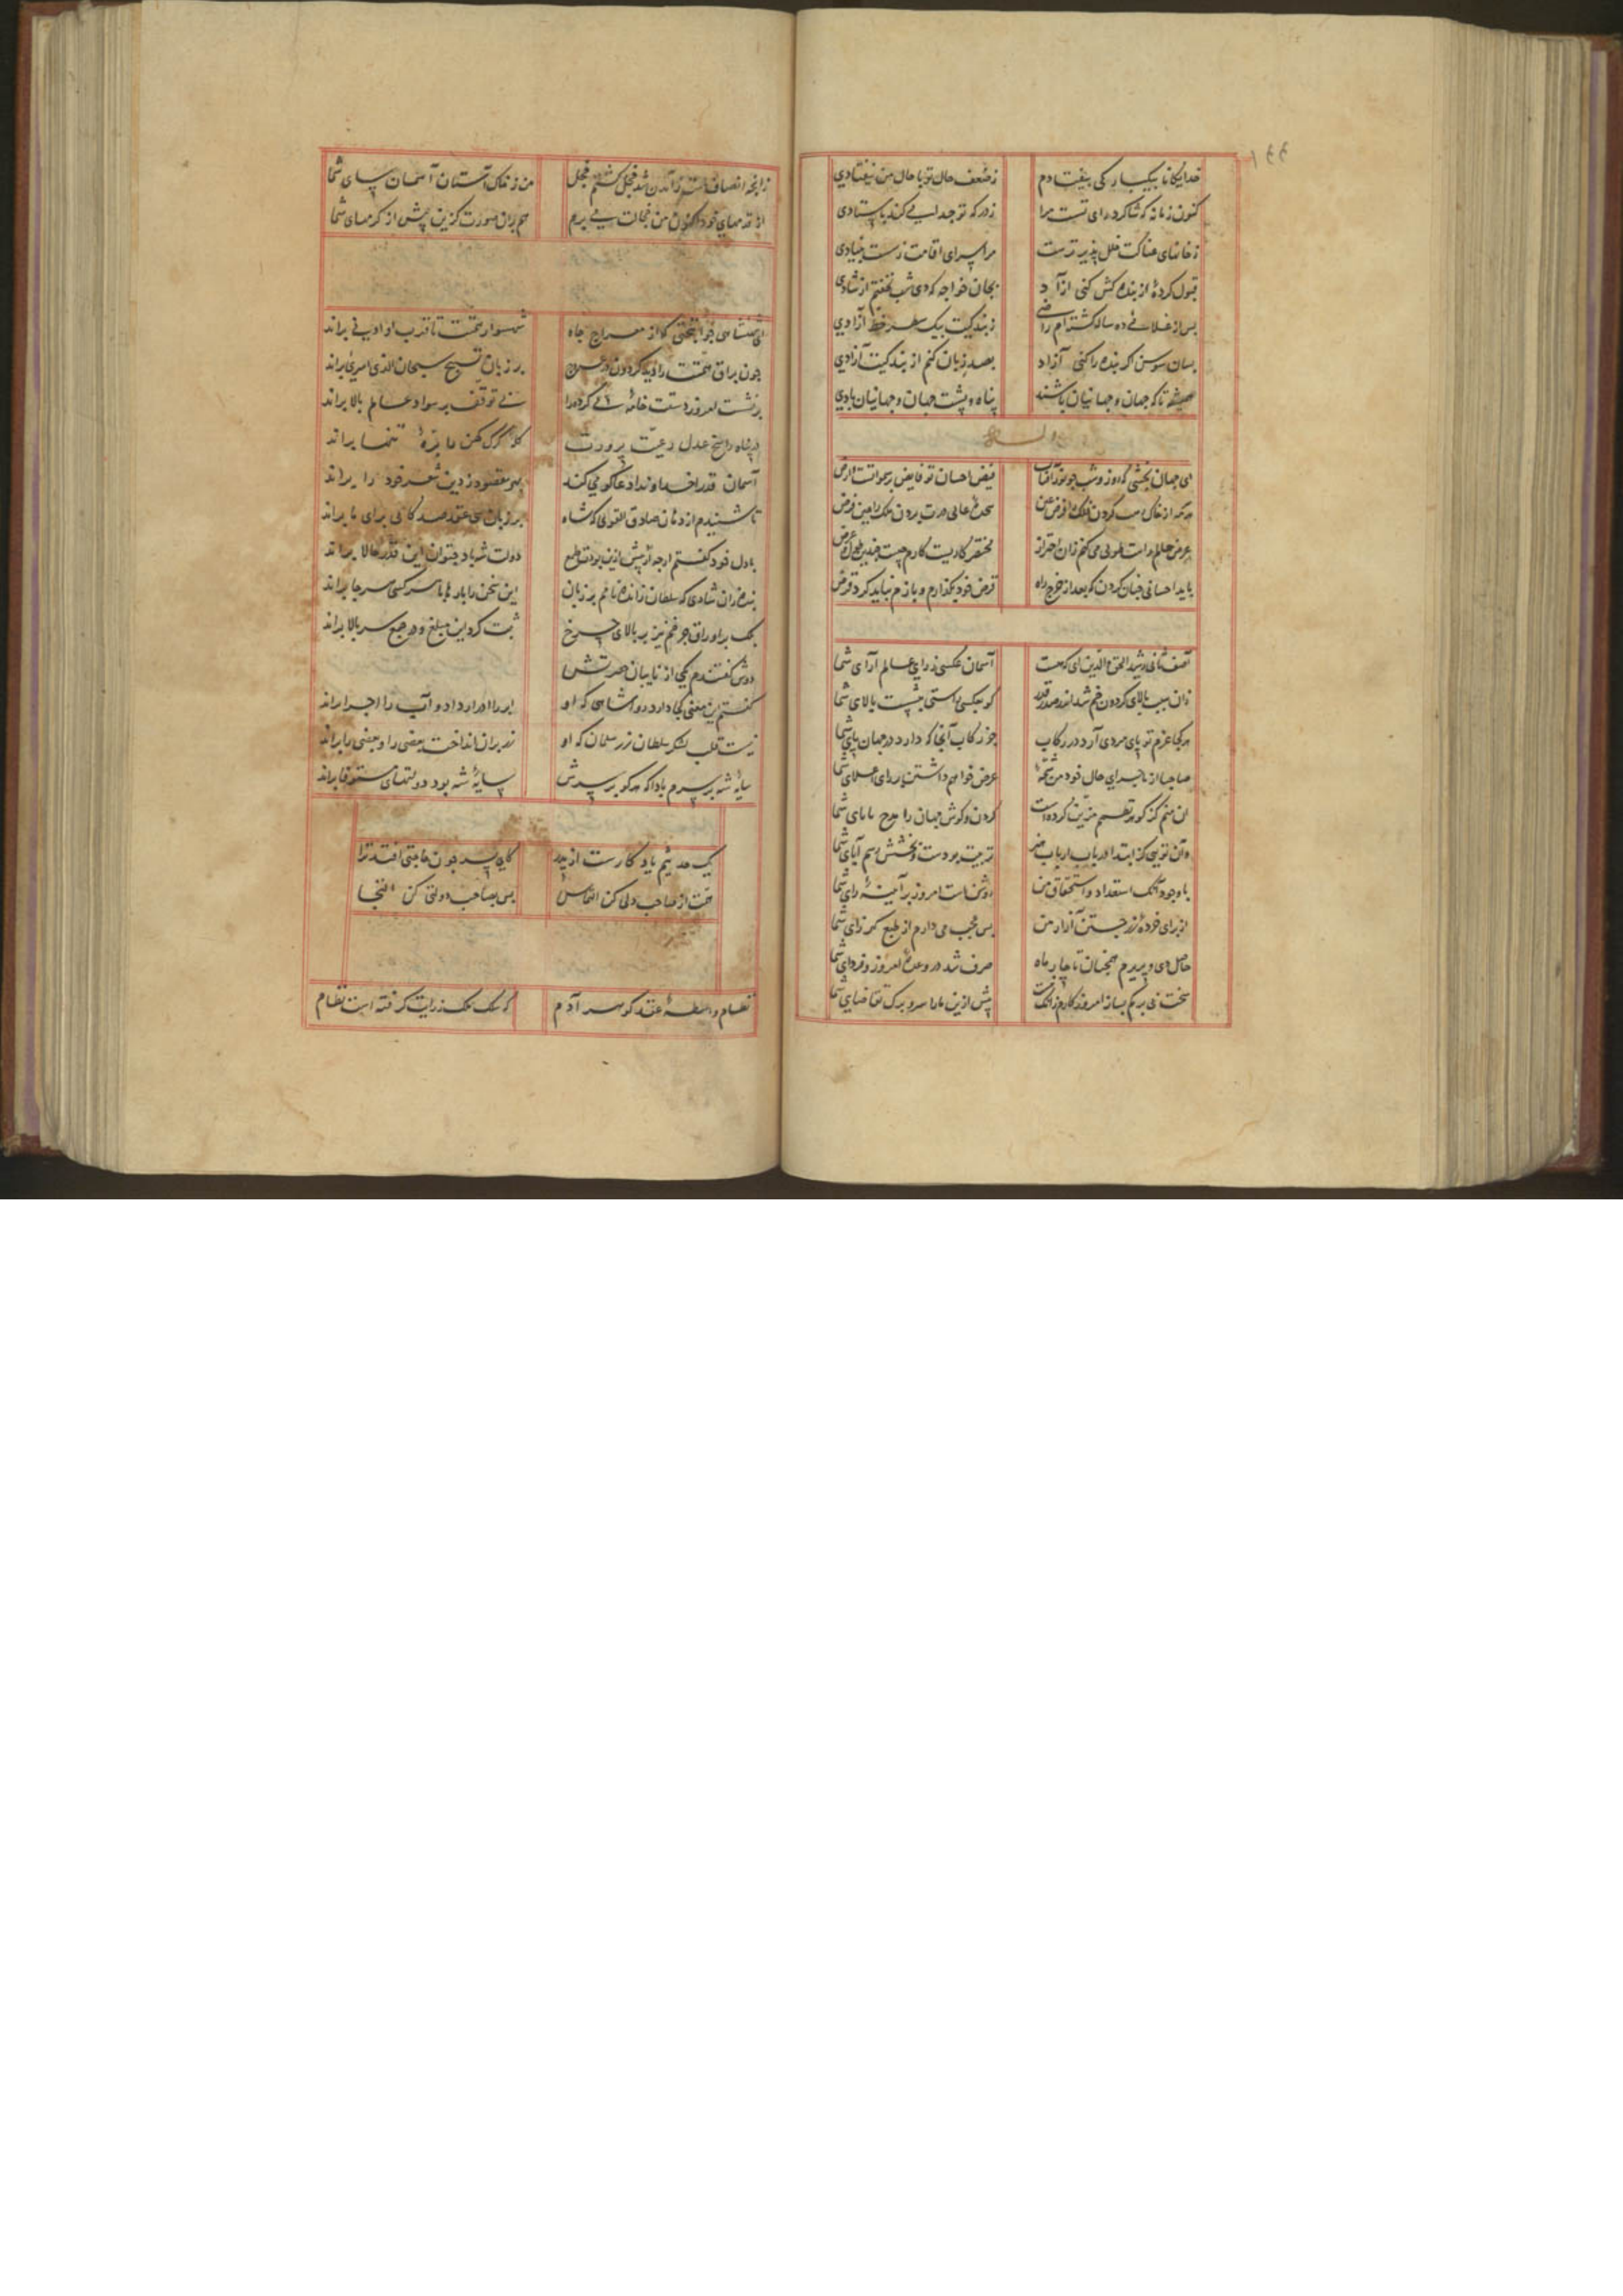 ۱۴۴
خدایکانا بیکبار کی بیفتادم زضعف حال تو با حال من نیفتادی
کنون زمانه که شاکرد رای تست مرا زدر که تو جدا می کند باستادی
زخانهای هناکت خلل پذیر ترست مرا سرای اقامت زسست بنیادی
قبول کردهٔ از بنده کش کنی آزاد بجان خواجه که دی شب نخفتم از شادی
پس از غلامی ده ساله کشته‌ام راضی زبندکیت بیک سطر خط آزادی
بسان سوسن اکر بنده را کنی آزاد بصد زبان کنم از بندکیت آزادی
همیشه تا که جهان و جهانیان باشند پناه و پشت جهان و جهانیان بادی
وله
ای جهان بخشی که روز و شب چو نور آفتاب فیض احسان تو فایض بر سموات است و ارض
عرض حالم راست طولی می کنم زان احتراز مختصر کاریست کارم چیست چندین طول و عرض
باید احسانی چنان کردن که بعد از خرج راه قرض خود بکذارم و بازم نباید کرد قرض
آصف ثانی رشید الحق والدین ای که هست آسمان عکسی ز رای عالم آرای شما
زان سبب بالای کردون خم شد از صدر قدر
هر کجا عزم تو پای مردی آرد در رکاب جز رکاب آنجا که دارد در جهان پای شما
صاحبا از ماجرای حال خود من شمهٔ عرض خواهم داشتن با رای اعلای شما
آن منم کز کوهر نظمم مزین کرده است کردن و کوش جهان را مدح بابای شما
وان تویی کز ابتدا در باب ارباب هنر تربیت بودست و بخشش رسم آبای شما
با وجود آنک استعداد و استحقاق من روشن است امروز بر آیینهٔ رای شما
از برای خردهٔ زر جستن آزار من بس عجب می دارم از طبع کهرزای شما
حاصل دی و پریرم همچنان تا چار ماه صرف شد در وعدهٔ امروز و فردای شما
سخت بی برکم بساز امروز کارم زانک نیست پیش ازین ما را سر و برک تقاضای شما
زانچه انصاف است زآمدن شد خجل کشتم خجل من ز خاک آستان آسمان سای شما
از قدمهای خود اکنون من خجالت می برم هم بران صورت کزین پیش از کرمهای شما
ای شهنشاهی جوانبختی که از معراج جاه شهسوار همتت تا قرب او ادنی براند
چون براق همتت را دید کردون در عروج بر زبان تسبیح سبحان الذی اسری براند
بی توقف بر سواد عالم بالا براند
در پناه راسخ عدل رعیت پرورت
آسمان قدرا خداوندا دعا کو می کند بهر مقصودی زدین شعر خود را براند
تا شنیدم از دهان صادق القولی که شاه بر زبان سی عقد صد کانی برای ما براند
با دل خود کفتم ارچه پیش ازین بودت طمع دولت شه باد بتوان این قدر حالا براند
بنده زان شادی که سلطان زانده نامم بر زبان این سخن را بارها با سرکسی سرجا براند
بلک بر اوراق چرخم نیز بر بالای چرخ ثبت کرد این مبلغ و مرجع سر بالا براند
دوش کفتندم یکی از نایبان حضرتش
کفتم این معنی کجا دارد روا شاهی که او ابر را ادرار داد و آب را اجرا براند
نیست قلب لشکر سلطان زر سلمان که او زیر بران انداخت بعضی را و بعضی را براند
سایهٔ شه بر سرم بادا که هر کو بر سرش سایهٔ شه بود دولتهای مستوفا براند
یک حدیثم یاد کارست از پدر کای پسر چون حاجتی افتد ترا
همت از صاحب دلی کن التماس پس بصاحب دولتی کن التجا
نظام واسطهٔ عقد کوهر آدم که سلک ملک ز رایت کرفته است نظام